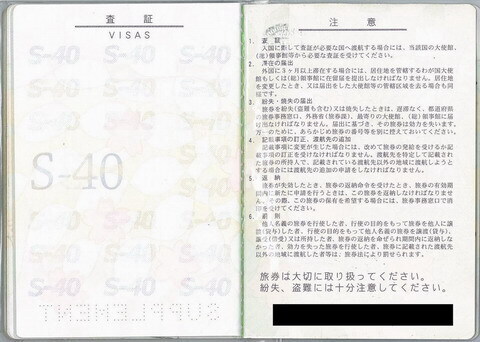 査証
VISAS
S-40
SUPPLEMENT
注意
1. 査証
入国に際して査証が必要な国へ渡航する場合には、当該国の大使館、
(総)領事館等から必要な査証を受けてください。
2. 滞在の届出
外国に3ヶ月以上滞在する場合には、居住地を管轄するわが国大使
館もしくは(総)領事館に在留届を提出しなければなりません。居住地
を変更したとき、又は届出をした大使館等の管轄区域を去る場合も同
様です。
3. 紛失・焼失の届出
旅券を紛失(盗難も含む)又は焼失したときは、遅滞なく、都道府県
の旅券事務窓口、外務省(旅券課)、最寄りの大使館、(総)領事館に届
け出なければなりません。届出に基づき、その旅券は効力を失います。
万一のために、あらかじめ旅券の番号等を別に控えておいてください。
4. 記載事項の訂正、渡航先の追加
記載事項に変更が生じた場合には、改めて旅券の発給を受けるか記
載事項の訂正を受けなければなりません。渡航先を特定して記載され
た旅券の所持人で、記載されている渡航先以外の地域に渡航しようと
する場合には渡航先の追加の申請をしなければなりません。
5. 返納
旅券が失効したとき、旅券の返納命令を受けたとき、旅券の有効期
間内に新たに申請を行うときは、この旅券を返納しなければなりませ
ん。その際、この旅券の保有を希望する場合には、旅券事務窓口で消
印を受けてください。
6. 罰則
他人名義の旅券を行使した者、行使の目的をもって旅券を他人に譲
渡(貸与)した者、行使の目的をもって他人名義の旅券を譲渡(貸与)、
譲受(借受)又は所持した者、旅券の返納を命ぜられ期間内に返納しな
かった者、効力を失った旅券を行使した者、旅券に記載された渡航先
以外の地域に渡航した者等は、旅券法により罰せられます。
旅券は大切に取り扱ってください。
紛失、盗難には十分注意してください。